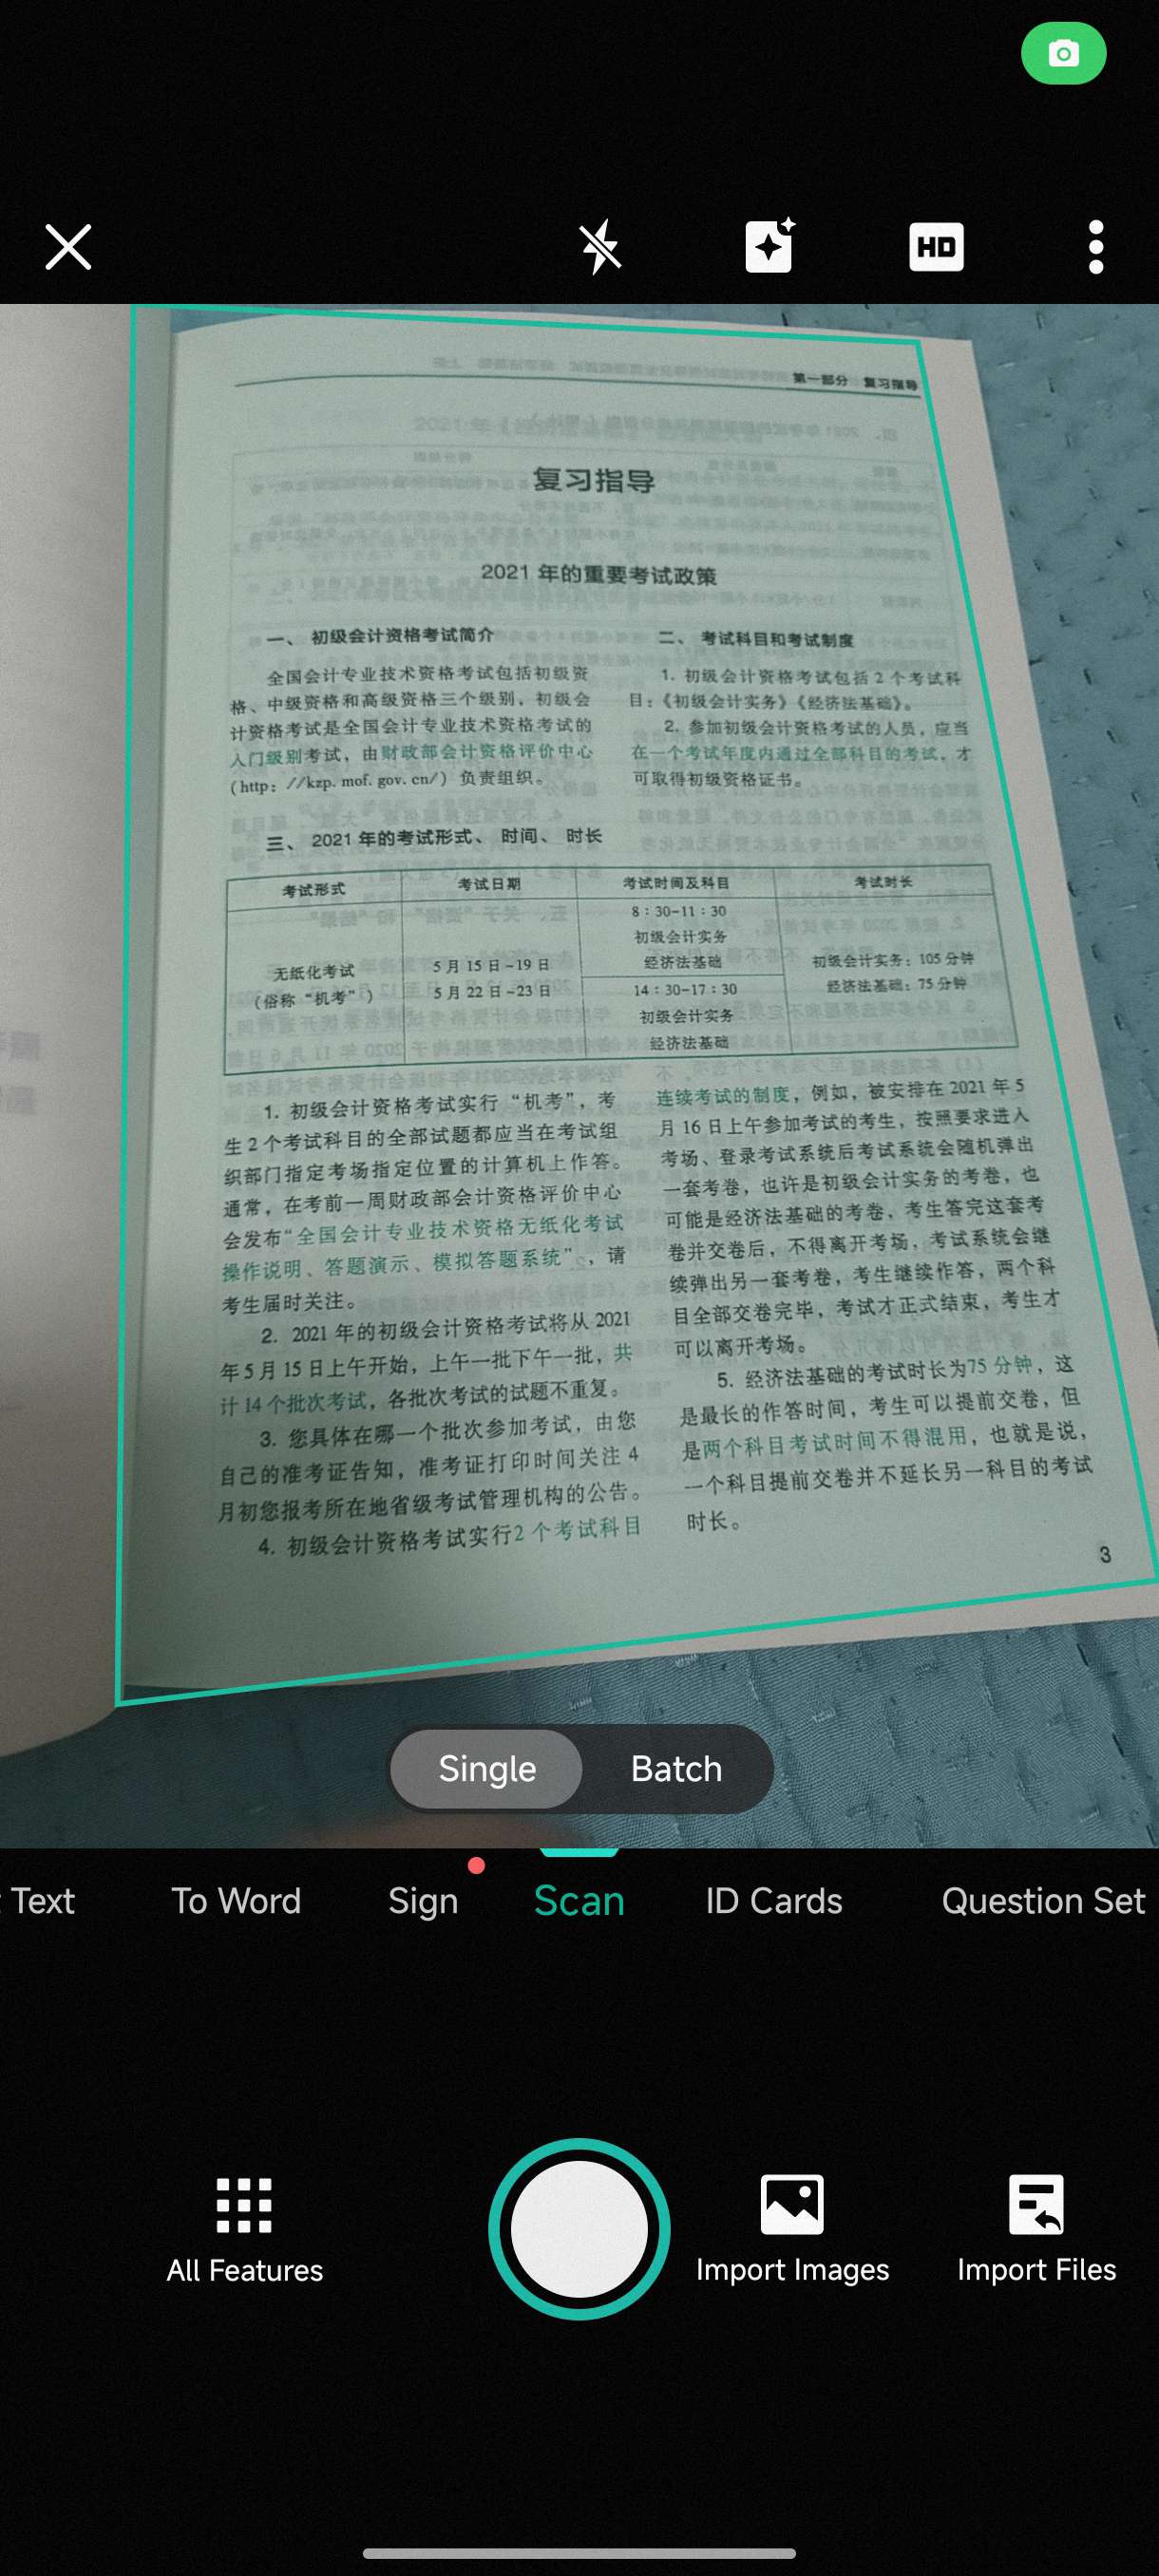 HD
第一部分 复习指导
复习指导
2021 年的重要考试政策
一、 初级会计资格考试简介
全国会计专业技术资格考试包括初级资
格、中级资格和高级资格三个级别，初级会
计资格考试是全国会计专业技术资格考试的
入门级别考试，由财政部会计资格评价中心
(http：//kzp. mof. gov. cn/）负责组织。
二、 考试科目和考试制度
1. 初级会计资格考试包括 2 个考试科
目：《初级会计实务》《经济法基础》。
2. 参加初级会计资格考试的人员，应当
在一个考试年度内通过全部科目的考试，才
可取得初级资格证书。
三、 2021 年的考试形式、 时间、 时长
考试形式 考试日期 考试时间及科目 考试时长
无纸化考试
（俗称“机考”）
5 月 15 日~19 日
5 月 22 日~23 日
8：30-11：30
初级会计实务
经济法基础
14：30-17：30
初级会计实务
经济法基础
初级会计实务：105 分钟
经济法基础：75 分钟
1. 初级会计资格考试实行“机考”，考
生 2 个考试科目的全部试题都应当在考试组
织部门指定考场指定位置的计算机上作答。
通常，在考前一周财政部会计资格评价中心
会发布“全国会计专业技术资格无纸化考试
操作说明、答题演示、模拟答题系统”，请
考生届时关注。
2. 2021 年的初级会计资格考试将从 2021
年 5 月 15 日上午开始，上午一批下午一批，共
计 14 个批次考试，各批次考试的试题不重复。
3. 您具体在哪一个批次参加考试，由您
自己的准考证告知，准考证打印时间关注 4
月初您报考所在地省级考试管理机构的公告。
4. 初级会计资格考试实行2 个考试科目
连续考试的制度，例如，被安排在 2021 年 5
月 16 日上午参加考试的考生，按照要求进入
考场、登录考试系统后考试系统会随机弹出
一套考卷，也许是初级会计实务的考卷，也
可能是经济法基础的考卷，考生答完这套考
卷并交卷后，不得离开考场，考试系统会继
续弹出另一套考卷，考生继续作答，两个科
目全部交卷完毕，考试才正式结束，考生才
可以离开考场。
5. 经济法基础的考试时长为75 分钟，这
是最长的作答时间，考生可以提前交卷，但
是两个科目考试时间不得混用，也就是说，
一个科目提前交卷并不延长另一科目的考试
时长。
3
Single Batch
Text To Word Sign Scan ID Cards Question Set
All Features Import Images Import Files